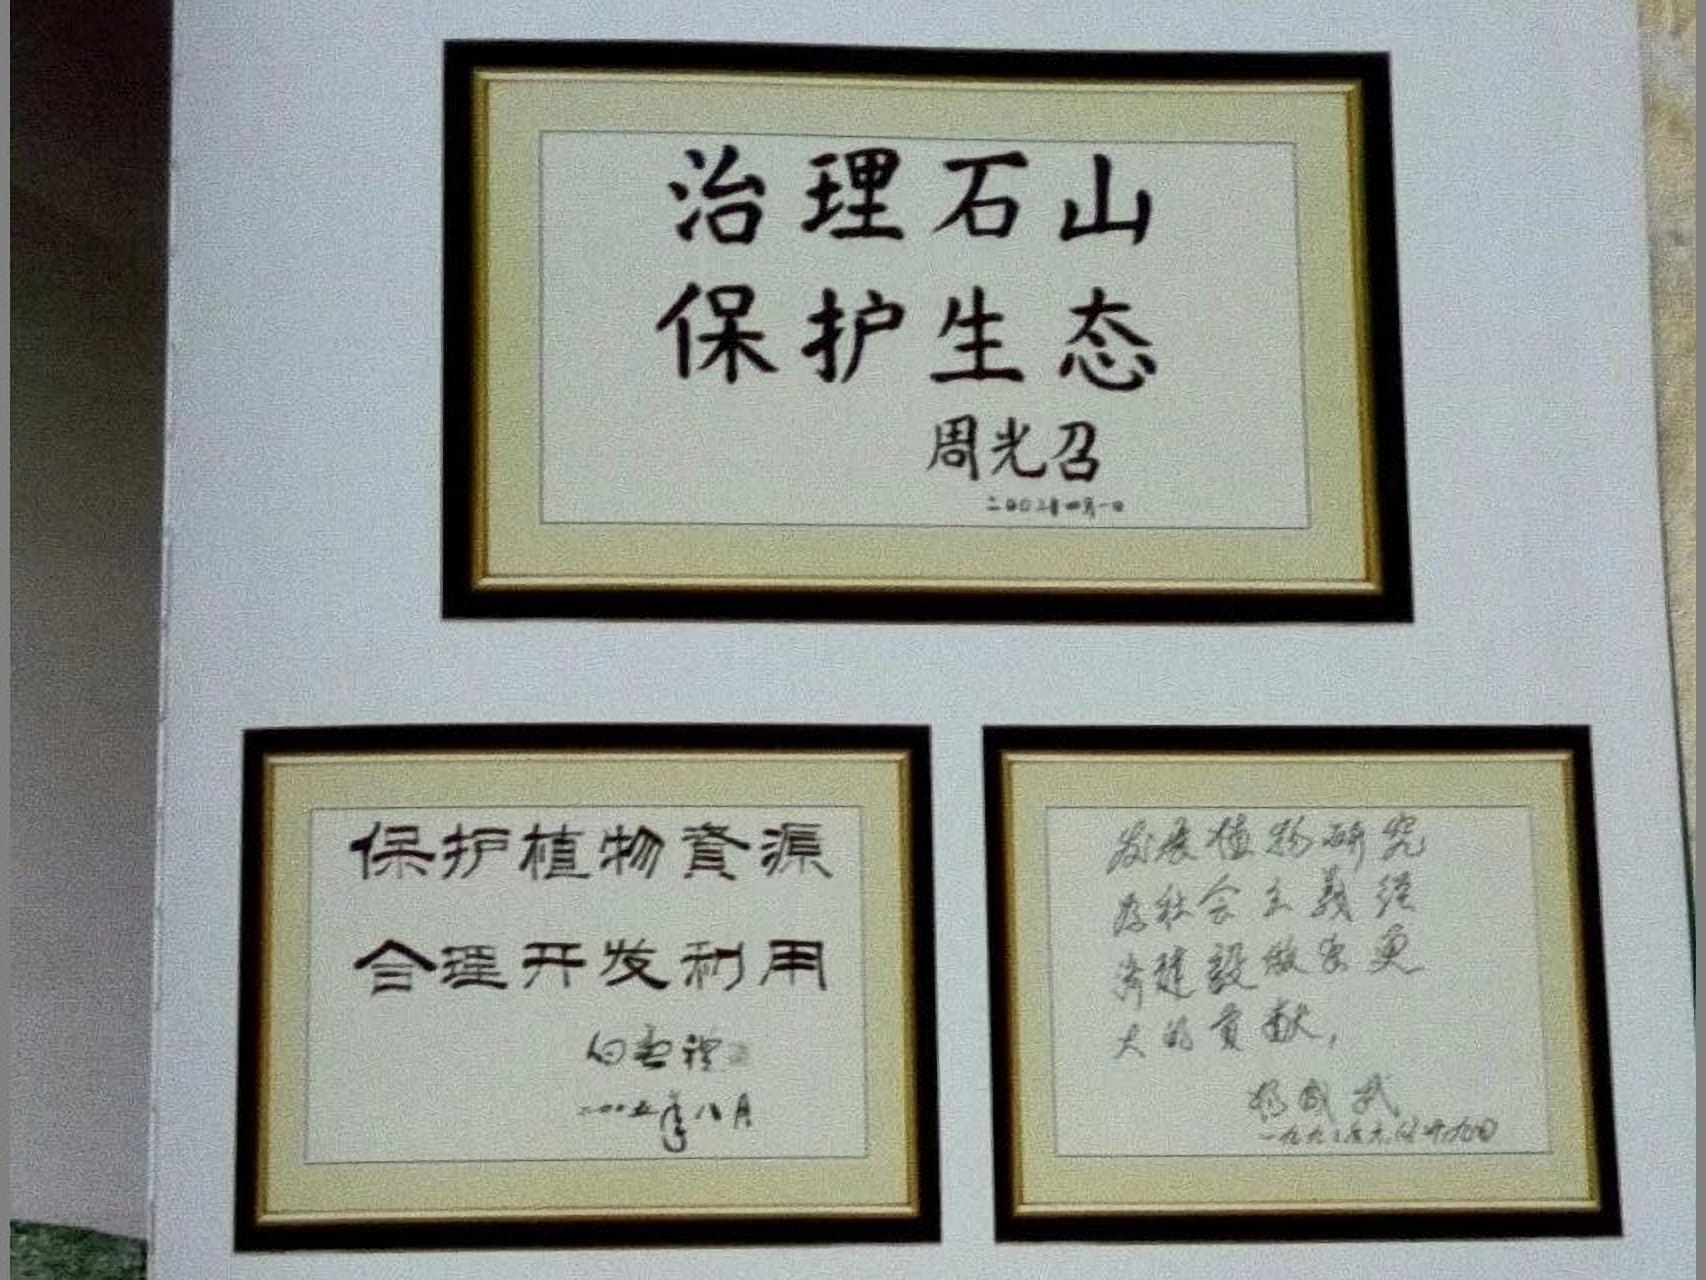 治理石山
保护生态
周光召
二〇〇二年四月一日
保护植物資源
合理开发利用
二〇〇五年八月
发展植物研究
为社会主義经
济建設做出更
大的貢献,
杨成武